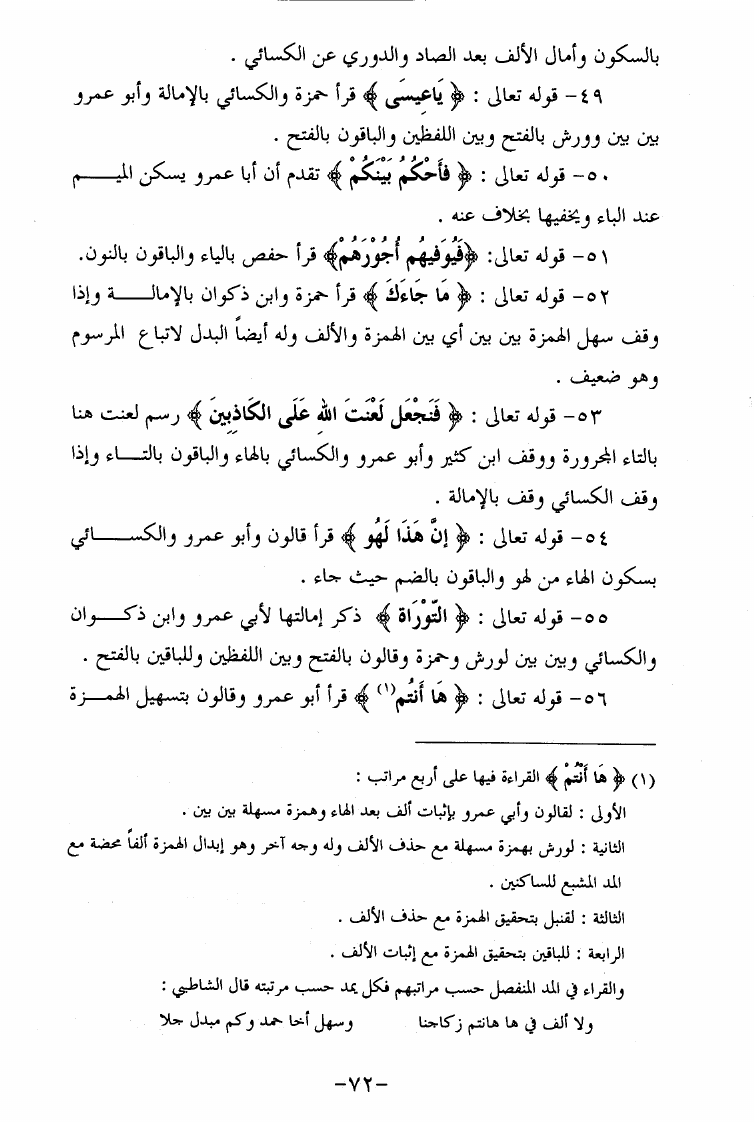 بالسكون وأمال الألف بعد الصاد والدوري عن الكسائي .
٤٩- قوله تعالى : ﴿ يَاعِيسَى ﴾ قرأ حمزة والكسائي بالإمالة وأبو عمرو
بين بين وورش بالفتح وبين اللفظين والباقون بالفتح .
٥٠- قوله تعالى : ﴿ فأَحْكُمُ بَيْنَكُمْ ﴾ تقدم أن أبا عمرو يسكن الميــــم
عند الباء ويخفيها بخلاف عنه .
٥١- قوله تعالى: ﴿فَيُوَفيهُم أُجُورَهُمْ﴾ قرأ حفص بالياء والباقون بالنون.
٥٢- قوله تعالى : ﴿ مَا جَاءَكَ ﴾ قرأ حمزة وابن ذكوان بالإمالــــة وإذا
وقف سهل الهمزة بين بين أي بين الهمزة والألف وله أيضاً البدل لاتباع المرسوم
وهو ضعيف .
٥٣- قوله تعالى : ﴿ فَنَجْعَل لَعْنَتَ اللهِ عَلَى الكَاذِبِينَ ﴾ رسم لعنت هنا
بالتاء المجرورة ووقف ابن كثير وأبو عمرو والكسائي بالهاء والباقون بالتـــاء وإذا
وقف الكسائي وقف بالإمالة .
٥٤- قوله تعالى : ﴿ إنَّ هَذَا لَهُو ﴾ قرأ قالون وأبو عمرو والكســــائي
بسكون الهاء من لهو والباقون بالضم حيث جاء .
٥٥- قوله تعالى : ﴿ التّوْرَاة ﴾ ذكر إمالتها لأبي عمرو وابن ذكـــوان
والكسائي وبين بين لورش وحمزة وقالون بالفتح وبين اللفظين وللباقين بالفتح .
٥٦- قوله تعالى : ﴿ هَا أَنتُم(١) ﴾ قرأ أبو عمرو وقالون بتسهيل الهمــزة
(١) ﴿ هَا أَنْتُمْ ﴾ القراءة فيها على أربع مراتب :
الأولى : لقالون وأبي عمرو بإثبات ألف بعد الهاء وهمزة مسهلة بين بين .
الثانية : لورش بهمزة مسهلة مع حذف الألف وله وجه آخر وهو إبدال الهمزة ألفاً محضة مع
المد المشبع للساكنين .
الثالثة : لقنبل بتحقيق الهمزة مع حذف الألف .
الرابعة : للباقين بتحقيق الهمزة مع إثبات الألف .
والقراء في المد المنفصل حسب مراتبهم فكل يمد حسب مرتبته قال الشاطبي :
ولا ألف في ها هانتم زكاجنا وسهل أخا حمد وكم مبدل جلا
-٧٢-